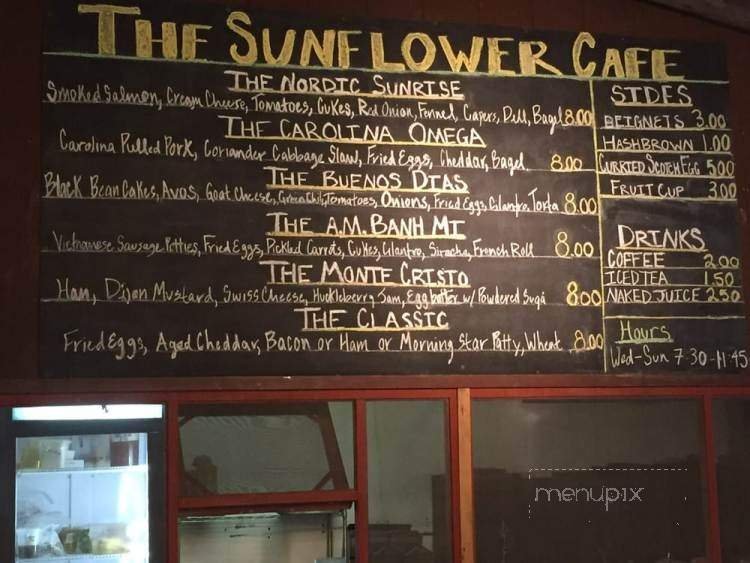 THE SUNFLOWER CAFE
THE NORDIC SUNRISE
Smoked Salmon, Cream Cheese, Tomatoes, Cukes, Red Onion, Fennel, Capers, Dill, Bagel 8.00
THE CAROLINA OMEGA
Carolina Pulled Pork, Coriander Cabbage Slaw, Fried Eggs, Cheddar, Bagel 8.00
THE BUENOS DIAS
Black Bean Cakes, Avos, Goat Cheese, Green Chili, Tomatoes, Onions, Fried Eggs, Cilantro, Torta 8.00
THE A.M. BANH MI
Vietnamese Sausage Patties, Fried Eggs, Pickled Carrots, Cukes, Cilantro, Siracha, French Roll 8.00
THE MONTE CRISTO
Ham, Dijon Mustard, Swiss Cheese, Huckleberry Jam, Egg batter w/ Powdered Suga 8.00
THE CLASSIC
Fried Eggs, Aged Cheddar, Bacon or Ham or Morning Star Patty, Wheat 8.00
SIDES
BEIGNETS 3.00
HASHBROWN 1.00
CURRIED SCOTCH EGG 5.00
FRUIT CUP 3.00
DRINKS
COFFEE 2.00
ICED TEA 1.50
NAKED JUICE 2.50
Hours
Wed-Sun 7:30-11:45
menupix